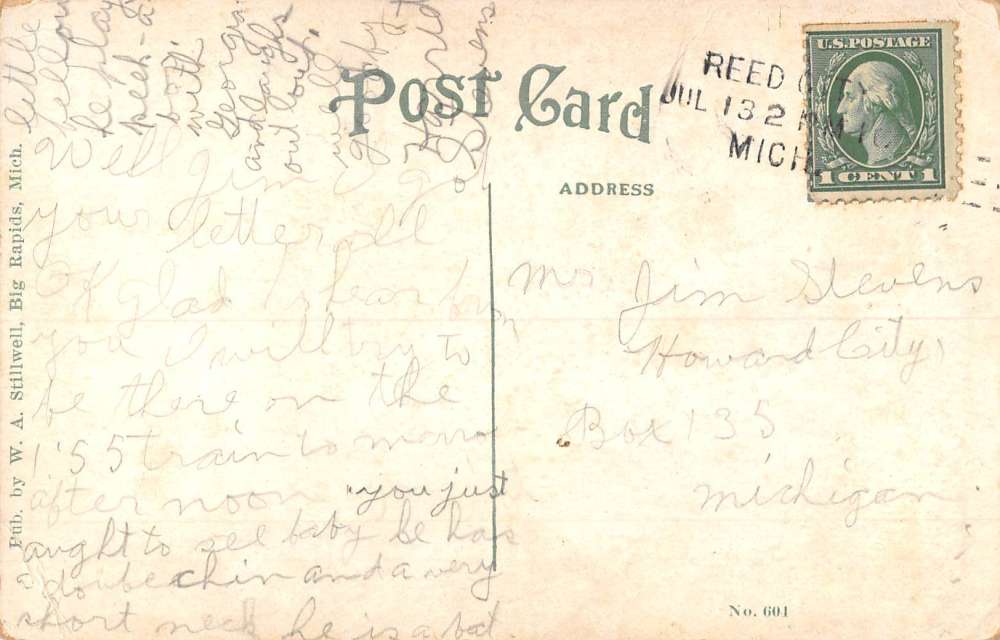 Post Card
ADDRESS
U.S. POSTAGE
1 CENT 1
REED
JUL 13 2
MICH.
Pub. by W. A. Stillwell, Big Rapids, Mich.
Well Jim I got
your letter all
OK glad to hear from
you I will try to
be there on the
1'55 train to morrow
after noon you just
aught to see baby he has
a double chin and a very
short neck he is a bet
little
he play
peek-a
with
Georgia
and laughs
out loud.
well
Stevens
Mr Jim Stevens
Howard City,
Box 135
Michigan
No. 601